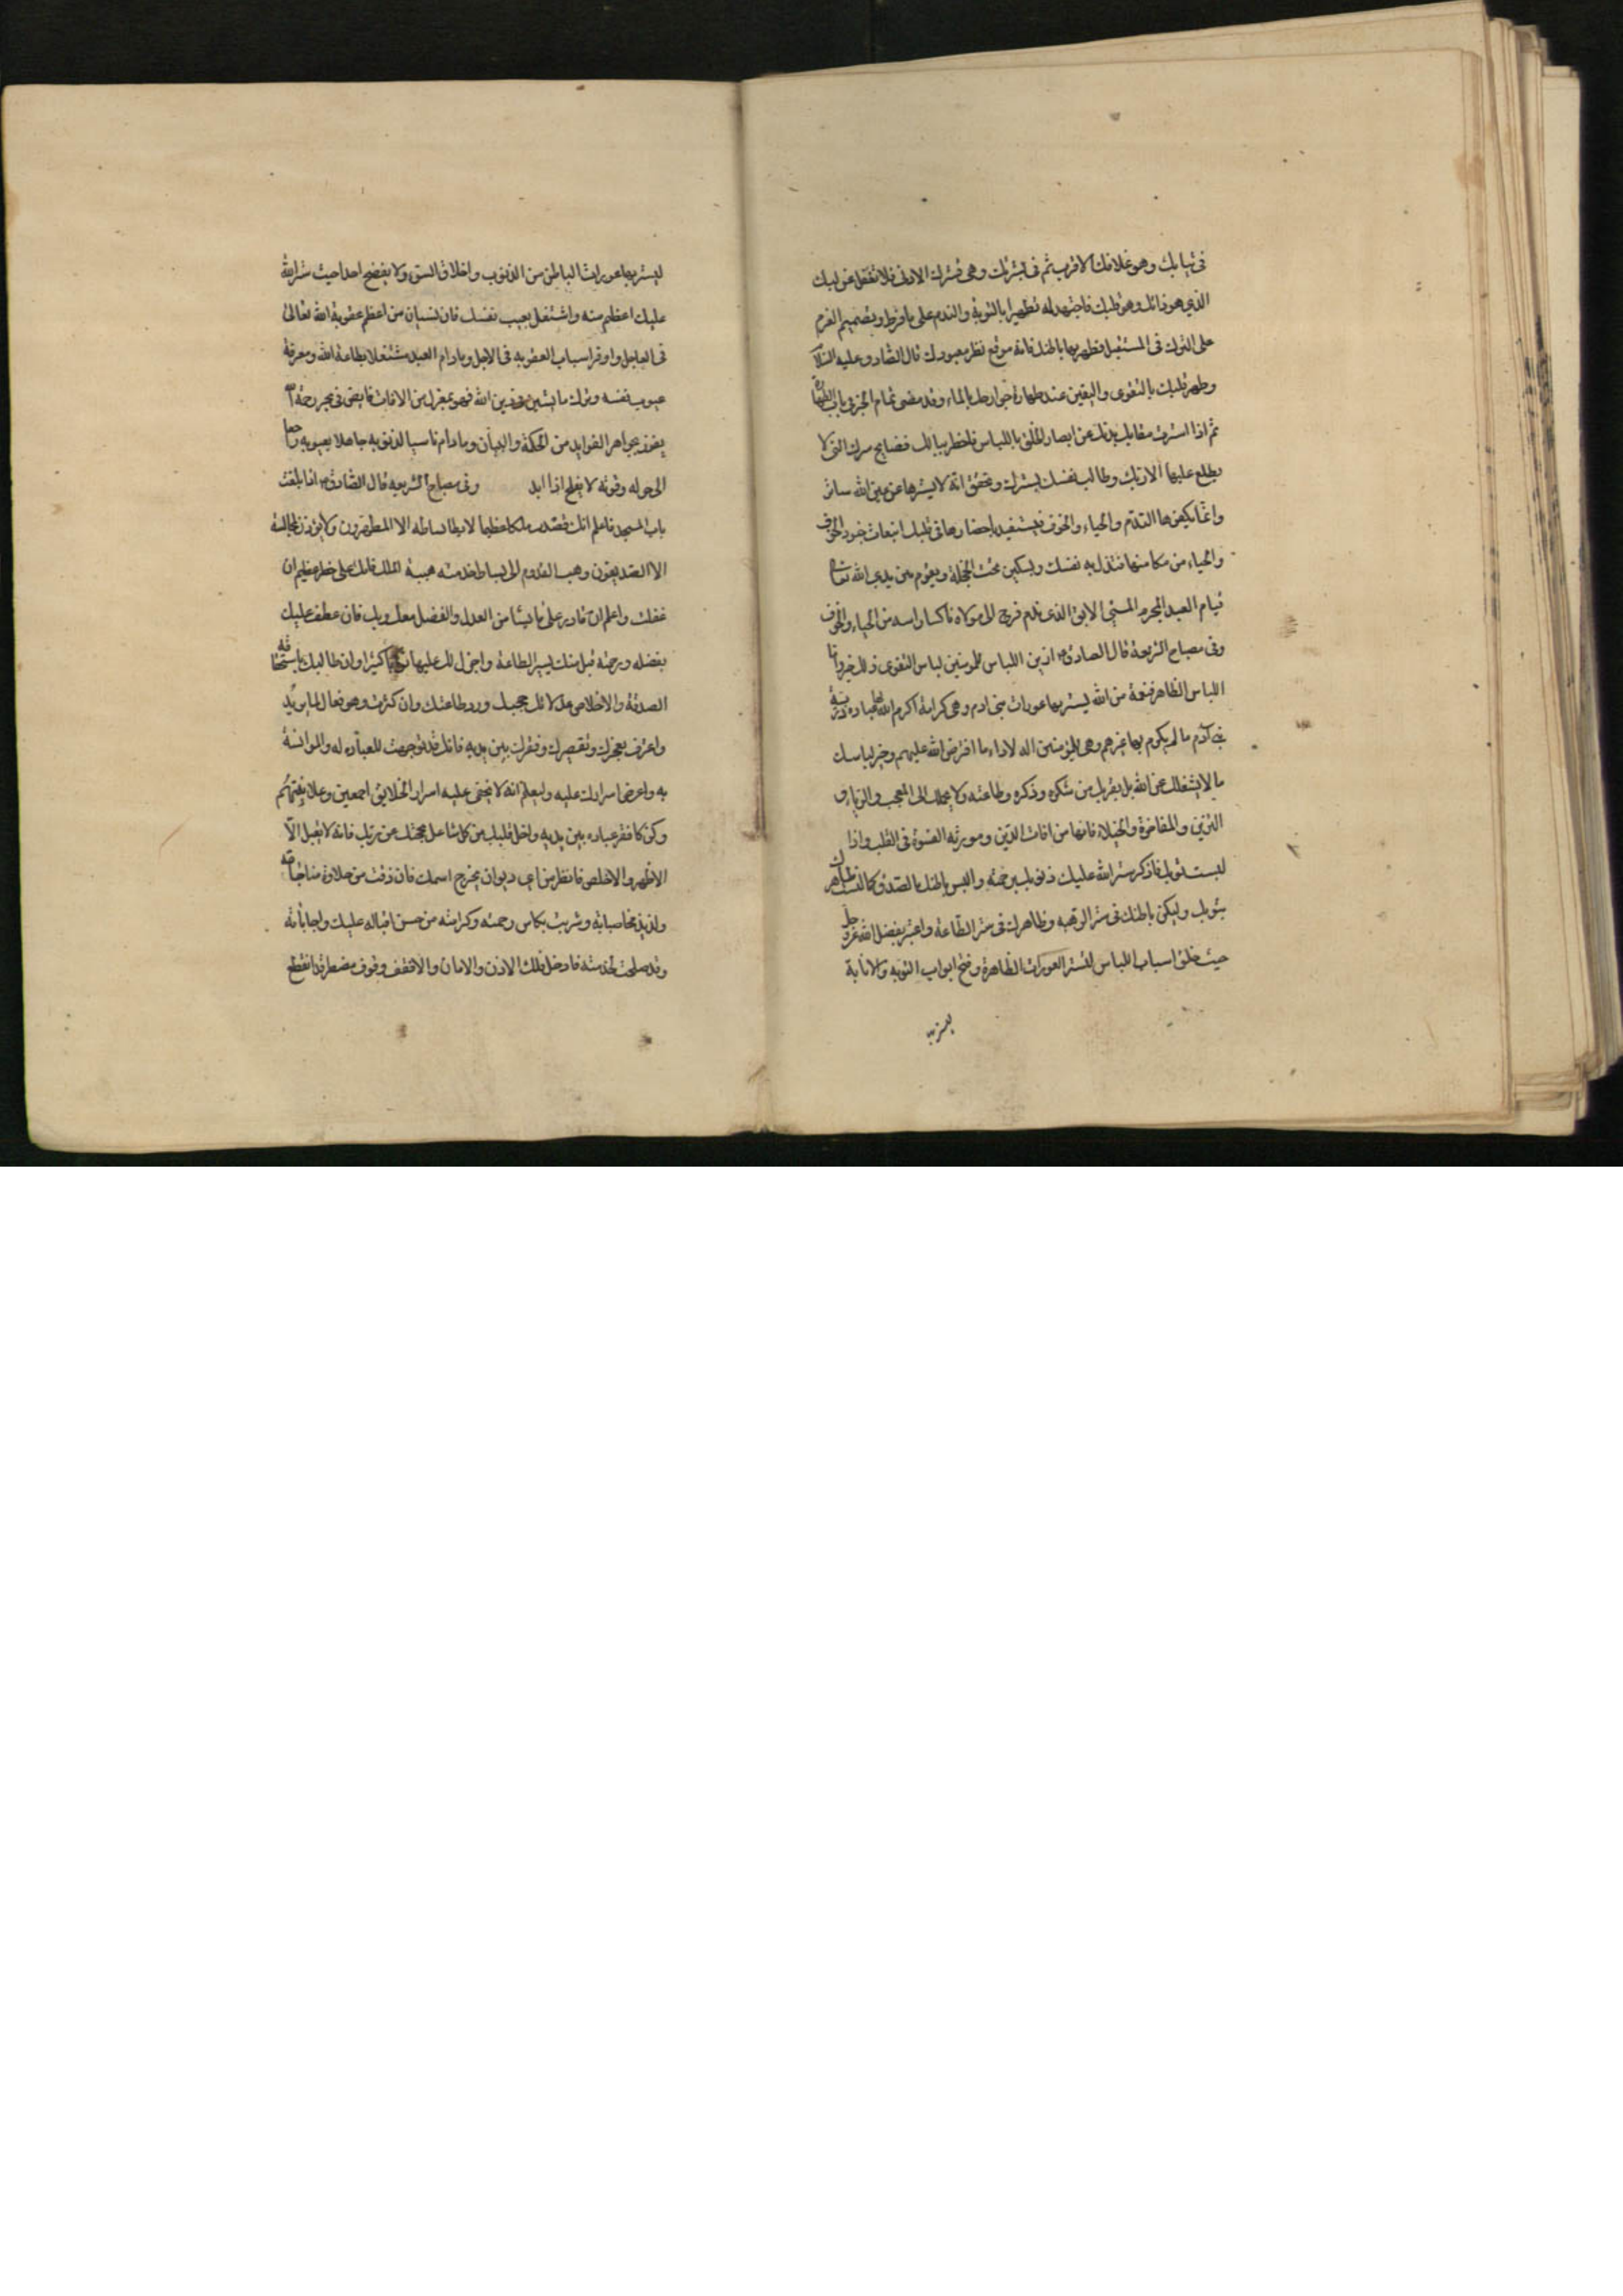 فى ثيابك وهو غلافك الاقرب ثم فى بشرتك وهى قشرك الادنى فلا تغفل عن لبك
الذى هو ذاتك وهو قلبك فاجتهد له تطهيرا بالتوبة والندم على ما فرط وتصميم العزم
على الترك فى المستقبل فطهر بها باطنك فانه موقع نظر معبودك قال الصادق عليه السلام
وطهر قلبك بالتقوى واليقين عند طهارة جوارحك بالماء وقد مضى تمام الخبر فى باب الطهارة
ثم اذا استرت مقابح بدنك عن ابصار الخلق باللباس فاخطر ببالك فضايح سرك التى لا
يطلع عليها الا ربك وطالب نفسك بسترك وتحقق انه لا يسترها عن عين الله ساتر
وانما يكفرها الندم والحياء والخوف فيستفيد باحضارها فى قلبك انبعاث جنود الخوف
والحياء من مكامنها فتذل به نفسك ويسكين تحت الخجلة ويقوم بين يدى الله تعالى
قيام العبد المجرم المسىء الابق الذى ندم فرجع الى مولاه ناكسا راسه من الحياء والخوف
وفى مصباح الشريعة قال الصادق ازين اللباس للمومنين لباس التقوى ذلك خير واما
اللباس الظاهر فنعمة من الله يستر بها عورات بنى ادم وهى كرامة اكرم الله بها عباده ذرية
بنى آدم ما لم يكرم بها غيرهم وهى للمؤمنين اله لاداء ما افترض الله عليهم وخير لباسك
ما لا يشغلك عن الله بل يقربك من شكره وذكره وطاعته ولا يحملك الى العجب والرياء و
التزين والمفاخرة والخيلاء فانها من افات الدين ومورثه القسوة فى القلب واذا
لبست ثوبك فاذكر ستر الله عليك ذنوبك برحمته والبس باطنك بالصدق كما البست ظاهرك
بثوبك وليكن باطنك فى ستر الرهبه وظاهرك فى ستر الطاعة واعتبر بفضل الله عز وجل
حيث خلق اسباب اللباس لتستر العورات الظاهرة وفتح ابواب التوبه والانابة
ليستر بها
ليستر بها عورات الباطن من الذنوب واخلاق السوء ولا يفضح احدا حيث ستر الله
عليك اعظم منه واشتغل بعيب نفسك فان نسيان من اعظم عقوبة الله تعالى
فى العاجل واوفر اسباب العقوبه فى الاجل وما دام العبد مشتغلا بطاعة الله ومعرفة
عيوب نفسه وترك ما يشين فى دين الله فهو بمعزل من الافات غايص فى بحر رحمة الله
يفوز بجواهر الفوايد من الحكمة والبيان وما دام ناسيا لذنوبه جاهلا بعيوبه راجعا
الى حوله وقوته لا يفلح اذا ابدا وفى مصباح الشريعه قال الصادق اذا بلغت
باب المسجد فاعلم انك قصدت ملكا عظيما لا يطا بساطه الا المطهرون ولا يؤذن لمجالسته
الا الصديقون وهب القدوم الى بساط خدمته هيبة الملك فانك على خطر عظيم ان
غفلت واعلم انه قادر على ما يشاء من العدل والفضل معك وبك فان عطف عليك
بفضله ورحمته قبل منك يسير الطاعة واجزل لك عليها ثوابا كثيرا وان طالبك باستحقاقه
الصدق والاخلاص عدلا بك حجبك ورد طاعتك وان كثرت وهو فعال لما يريد
واعترف بعجزك وتقصيرك وفقرك بين يديه فانك قد توجهت للعبادة له والموانسة
به واعرض اسرارك عليه وليعلم انه لا يخفى عليه اسرار الخلايق اجمعين وعلانيتهم
وكن كافقر عباده بين يديه واخل قلبك من كل شاغل يحجبك عن ربك فانه لا يقبل الا
الاطهر والاخلص فانظر من اى ديوان يخرج اسمك فان ذقت من حلاوة مناجاته
ولذيذ مخاطباته وشربت بكاس رحمته وكرامته من حسن اقباله عليك واجاباته
وقد صلحت لخدمته فادخل فلك الاذن والامان والا فقف وقوف مضطر قد انقطع